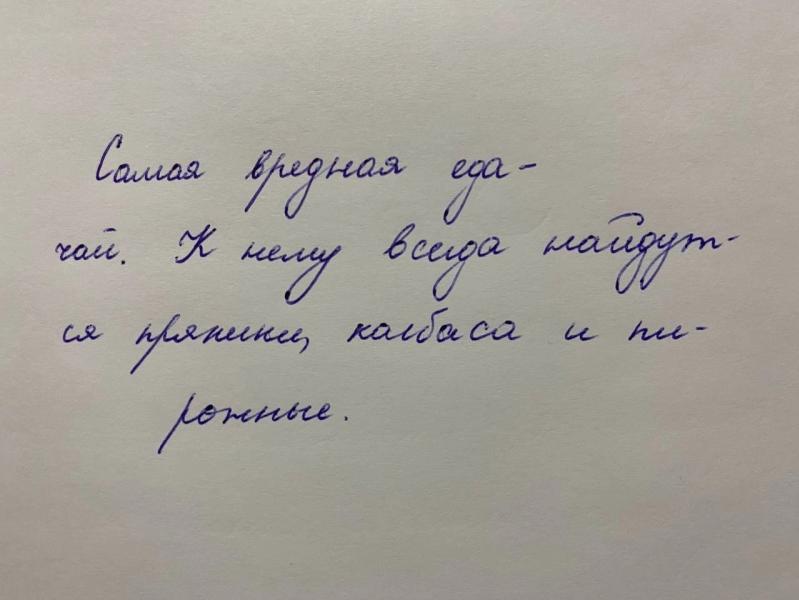 Самая вредная еда-
чай. К нему всегда найдут-
ся пряники, колбаса и пи-
рожные.